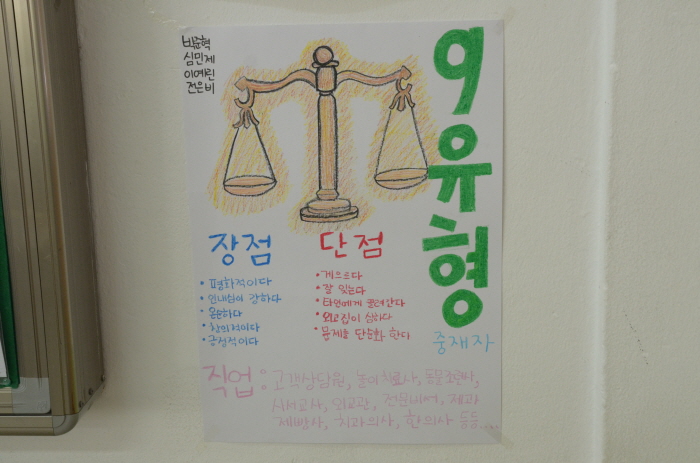 박준혁
심민제
이예린
전은비
9유형
중재자
장점
• 평화적이다
• 인내심이 강하다
• 온순하다
• 창의적이다
• 긍정적이다
단점
• 게으르다
• 잘 잊는다
• 타인에게 끌려간다
• 외고집이 심하다
• 문제를 단순화 한다
직업 : 고객상담원, 놀이치료사, 동물조련사,
사서교사, 외교관, 전문비서, 제과
제빵사, 치과의사, 한의사 등등....